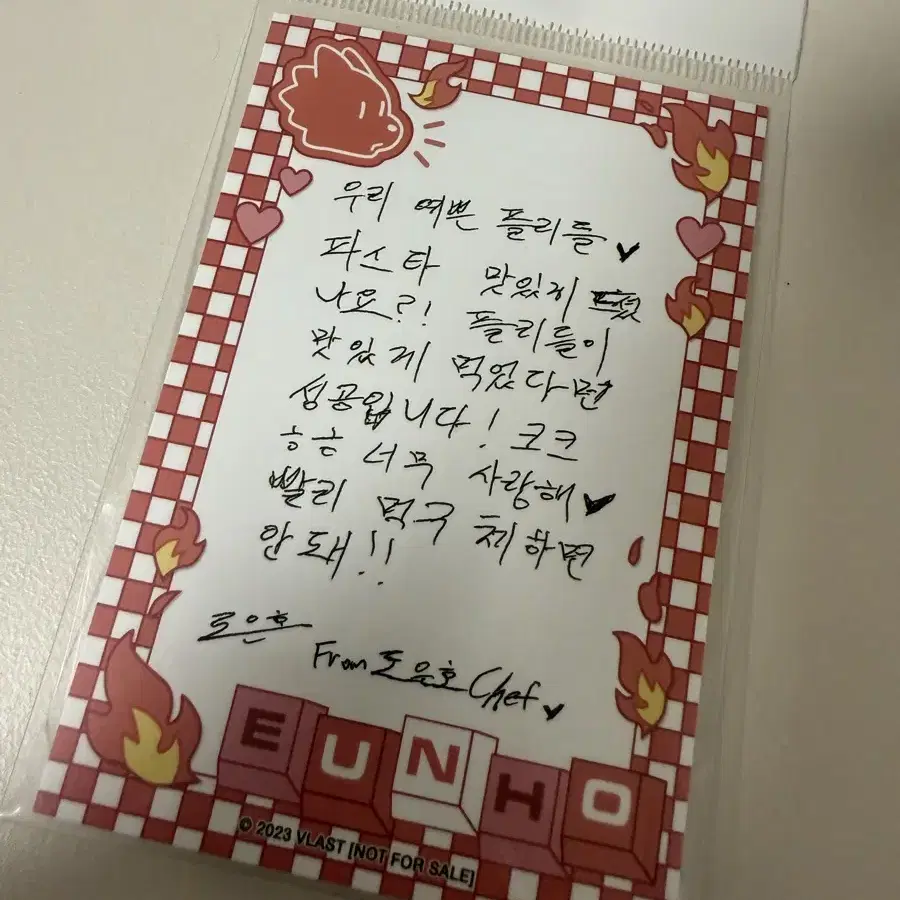 우리 예쁜 플리들♥
파스타 맛있게 드셨
나요?! 플리들이
맛있게 먹었다면
성공입니다! 크크
흐흐 너무 사랑해♥
빨리 먹구 체하면
안 돼!!
도은호
From 도은호 Chef♥
EUNHO
© 2023 VLAST [NOT FOR SALE]